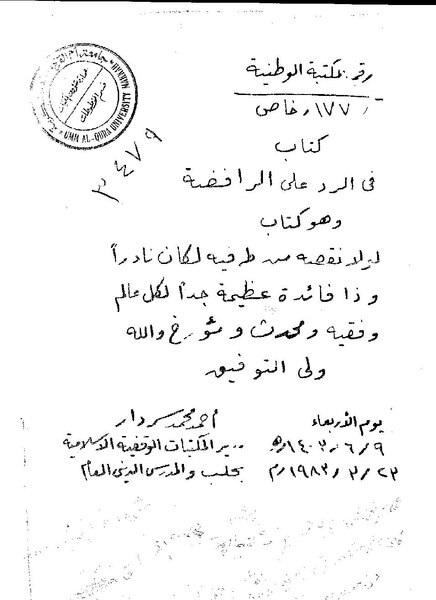 رقم المكتبة الوطنية
١٧٧ / خاص
٣٤٧٩
UMM AL-QURA UNIVERSITY
كتاب
فى الرد على الرافضة
وهو كتاب
لولا نقصه من طرفيه لكان نادراً
وذا فائدة عظيمة جداً لكل عالم
وفقيه ومحدث ومؤرخ والله
ولى التوفيق
يوم الأربعاء
٩ / ٦ / ١٤٠٣ هـ
٢٣ / ٣ / ١٩٨٣ م
أحمد محمد سردار
مدير المكتبات الوقفية الاسلامية
بحلب والمدرس الدينى العام